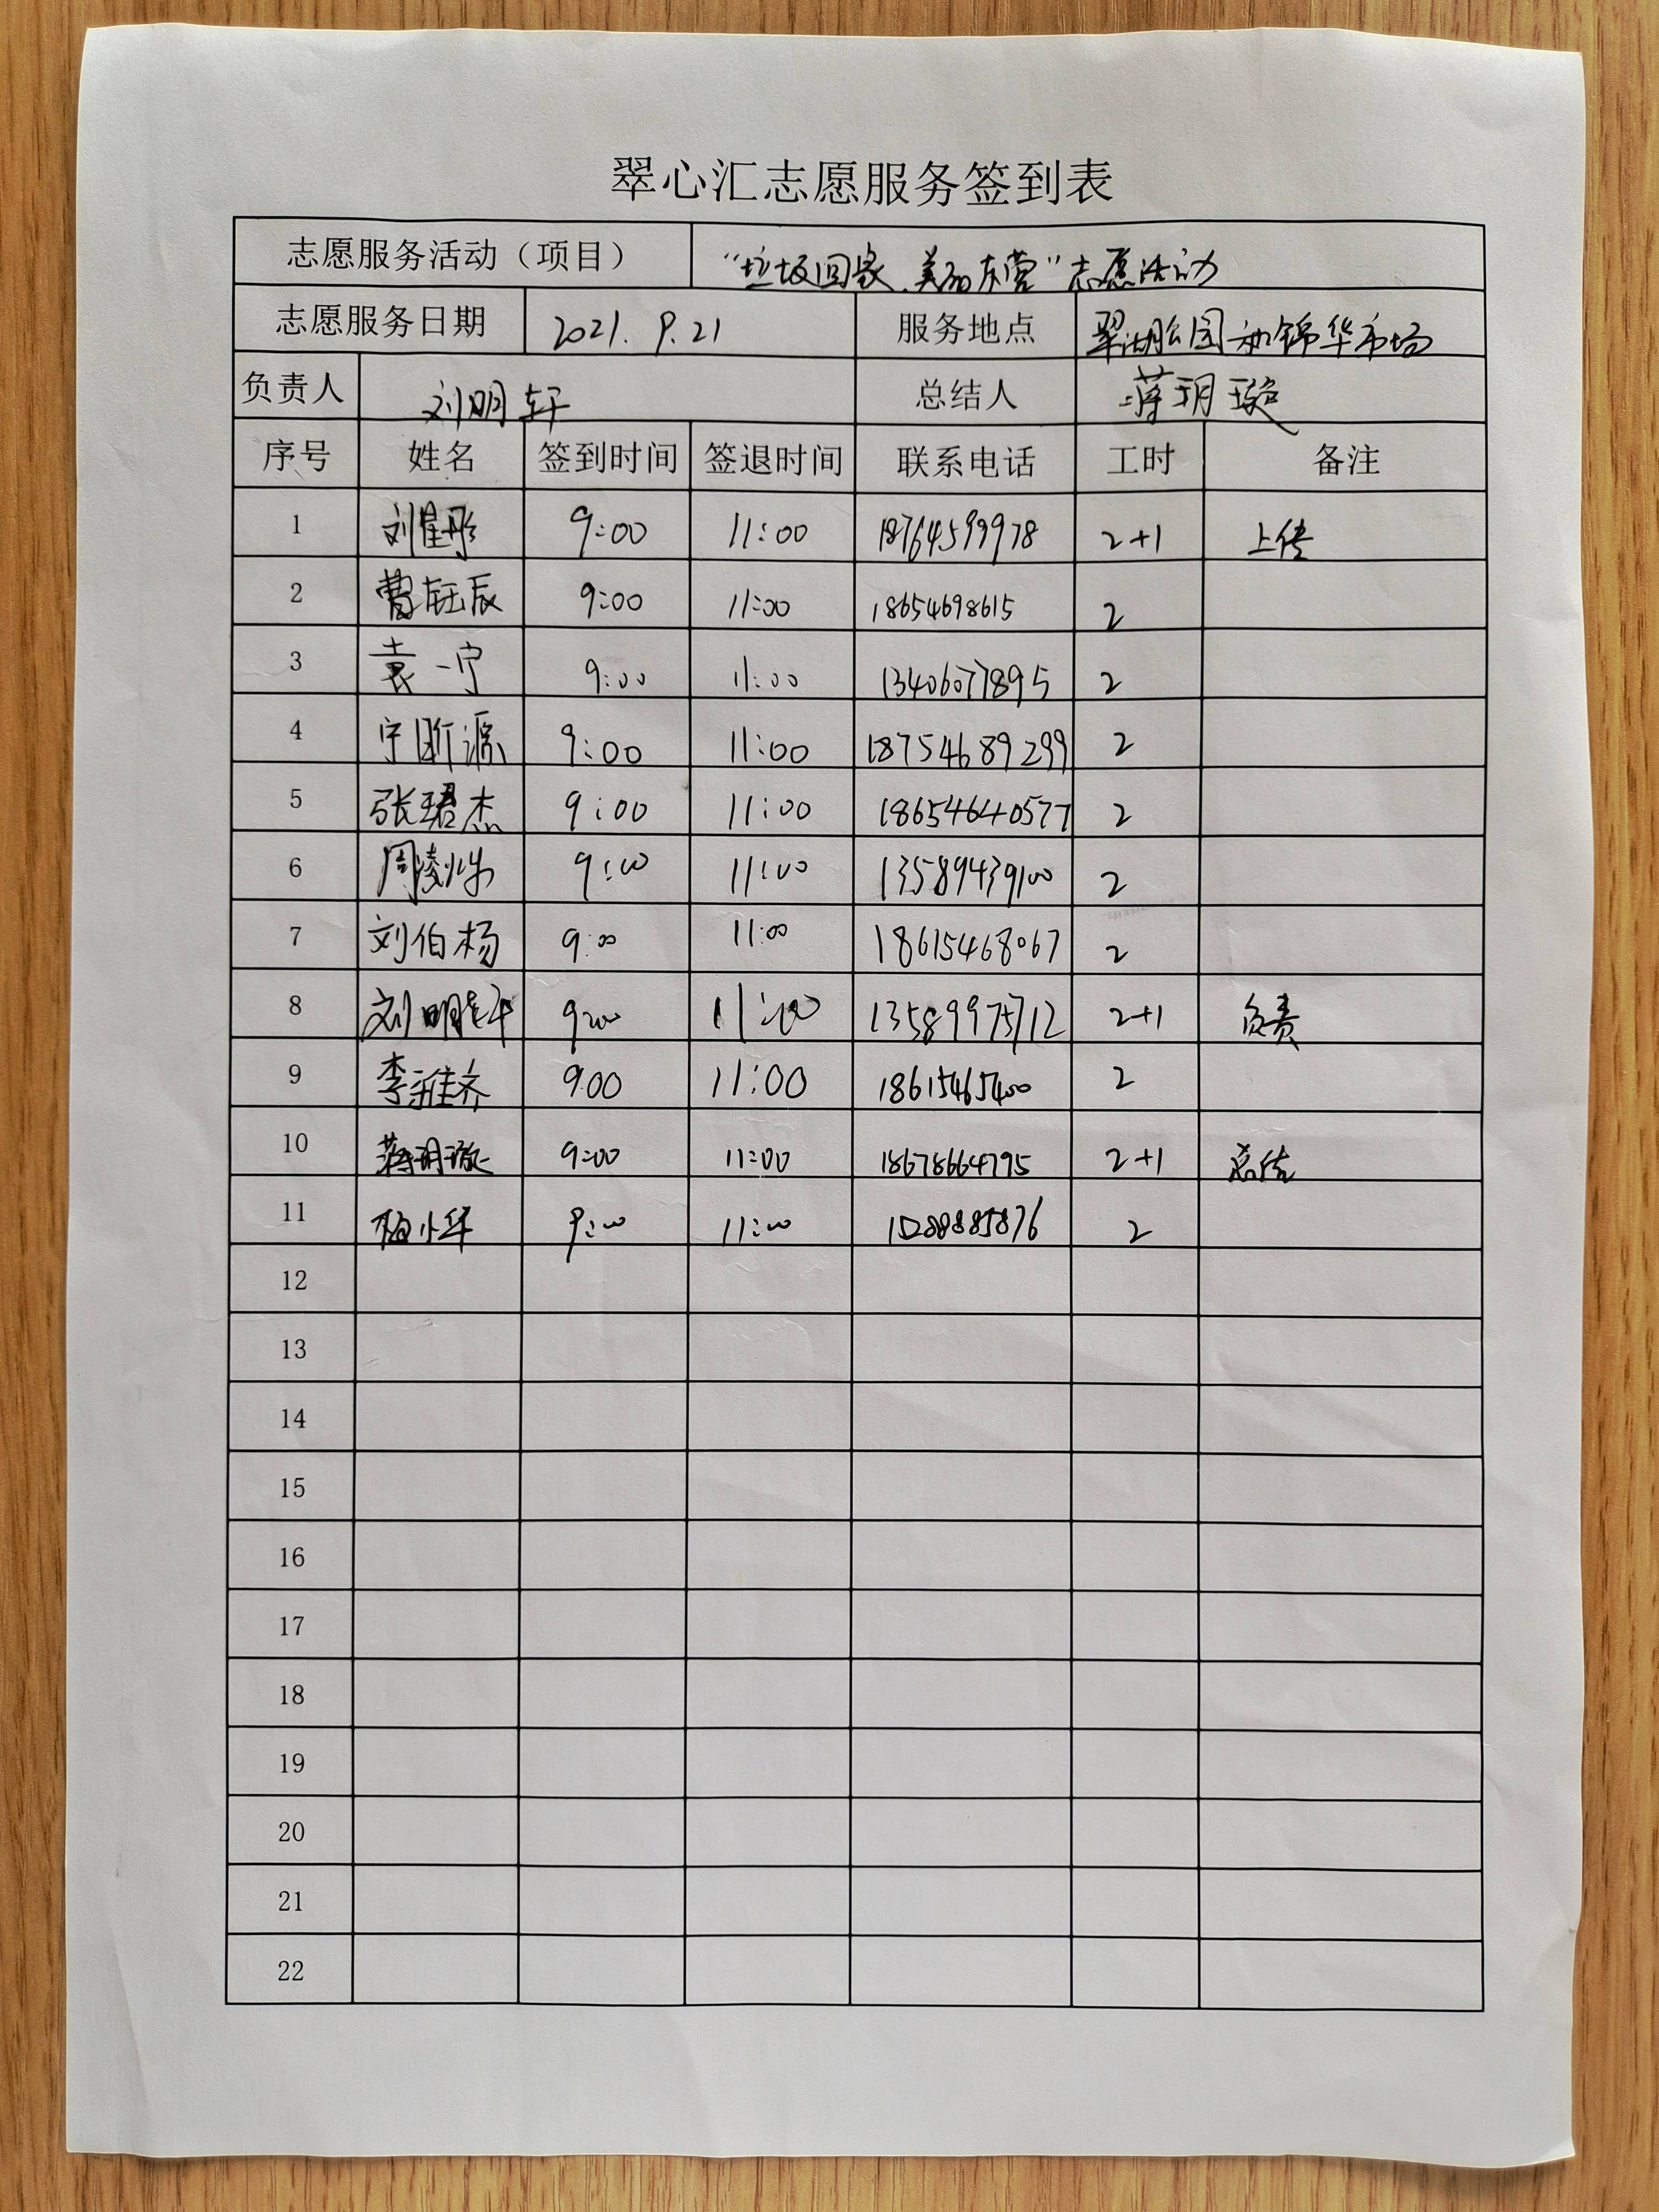 翠心汇志愿服务签到表
志愿服务活动（项目） “垃圾回家，美丽东营”志愿活动
志愿服务日期 2021.9.21 服务地点 翠湖公园和锦华市场
负责人 刘明轩 总结人 蒋玥璇
序号 姓名 签到时间 签退时间 联系电话 工时 备注
1 9:00 11:00 18764599978 2+1 上传
2 曹钰辰 9:00 11:00 18654698615 2
3 袁一宁 9:00 11:00 13406077895 2
4 宁昕源 9:00 11:00 18754689299 2
5 张珺杰 9:00 11:00 18654640577 2
6 9:00 11:00 13589439100 2
7 刘伯杨 9:00 11:00 18615468067 2
8 刘明轩 9:00 11:00 13589975712 2+1 负责
9 李雅齐 9:00 11:00 18615465400 2
10 蒋玥璇 9:00 11:00 18678664795 2+1 总结
11 9:00 11:00 2
12
13
14
15
16
17
18
19
20
21
22